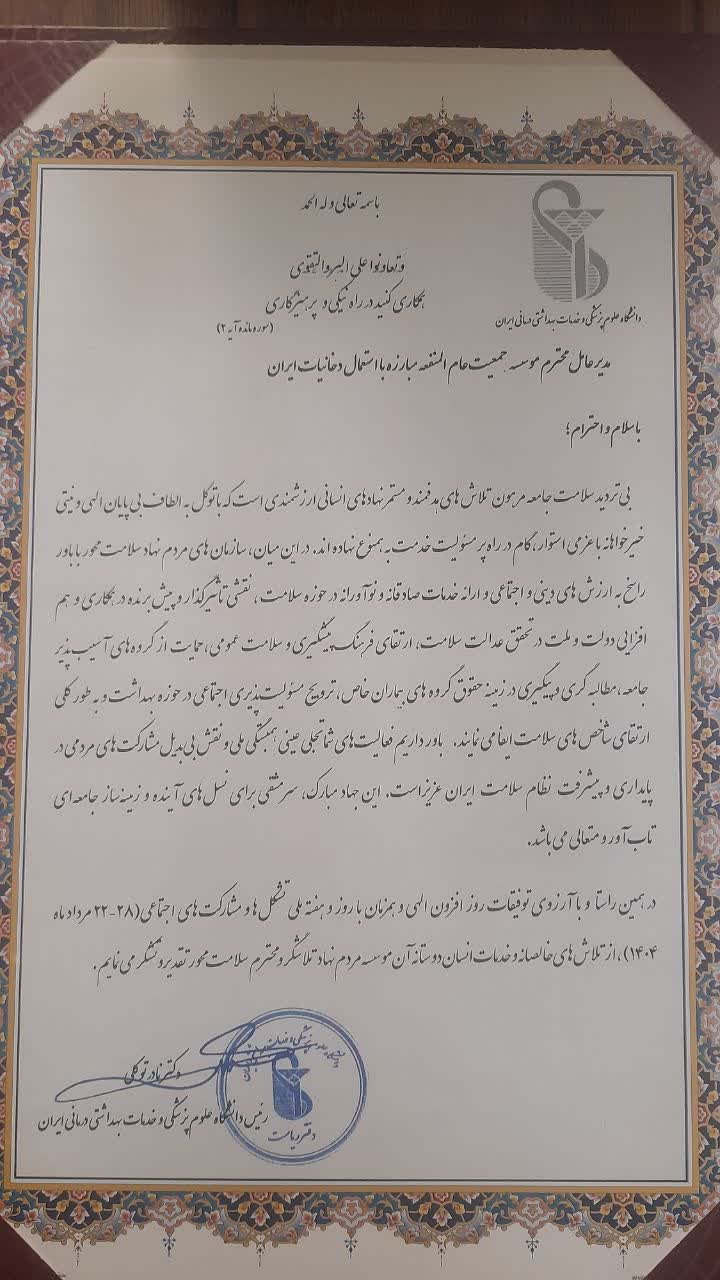 باسمه تعالی و له الحمد
و تعاونوا علی البر و التقوی
همکاری کنید در راه نیکی و پرهیزکاری
(سوره مائده آیه ۲)
دانشگاه علوم پزشکی و خدمات بهداشتی درمانی ایران
مدیر عامل محترم موسسه جمعیت عام المنفعه مبارزه با استعمال دخانیات ایران
با سلام و احترام؛
بی تردید سلامت جامعه مرهون تلاش های هدفمند و مستمر نهادهای انسانی ارزشمندی است که با توکل به الطاف بی پایان الهی و نیتی
خیرخواهانه با عزمی استوار، گام در راه پر مسئولیت خدمت به همنوع نهاده اند. در این میان، سازمان های مردم نهاد سلامت محور با باور
راسخ به ارزش های دینی و اجتماعی و ارائه خدمات صادقانه و نوآورانه در حوزه سلامت، نقشی تأثیرگذار و پیش برنده در همکاری و هم
افزایی دولت و ملت در تحقق عدالت سلامت، ارتقای فرهنگ پیشگیری و سلامت عمومی، حمایت از گروه های آسیب پذیر
جامعه، مطالبه گری و پیگیری در زمینه حقوق گروه های بیماران خاص، ترویج مسئولیت پذیری اجتماعی در حوزه بهداشت و به طور کلی
ارتقای شاخص های سلامت ایفا می نمایند. باور داریم فعالیت های شما تجلی عینی همبستگی ملی و نقش بی بدیل مشارکت های مردمی در
پایداری و پیشرفت نظام سلامت ایران عزیز است. این جهاد مبارک، سرمشقی برای نسل های آینده و زمینه ساز جامعه ای
تاب آور و متعالی می باشد.
در همین راستا و با آرزوی توفیقات روز افزون الهی و همزمان با روز و هفته ملی تشکل ها و مشارکت های اجتماعی (۲۸-۲۲ مرداد ماه
۱۴۰۴)، از تلاش های خالصانه و خدمات انسان دوستانه آن موسسه مردم نهاد تلاشگر و محترم سلامت محور تقدیر و تشکر می نمایم.
دکتر نادر توکلی
رئیس دانشگاه علوم پزشکی و خدمات بهداشتی درمانی ایران
دفتر ریاست